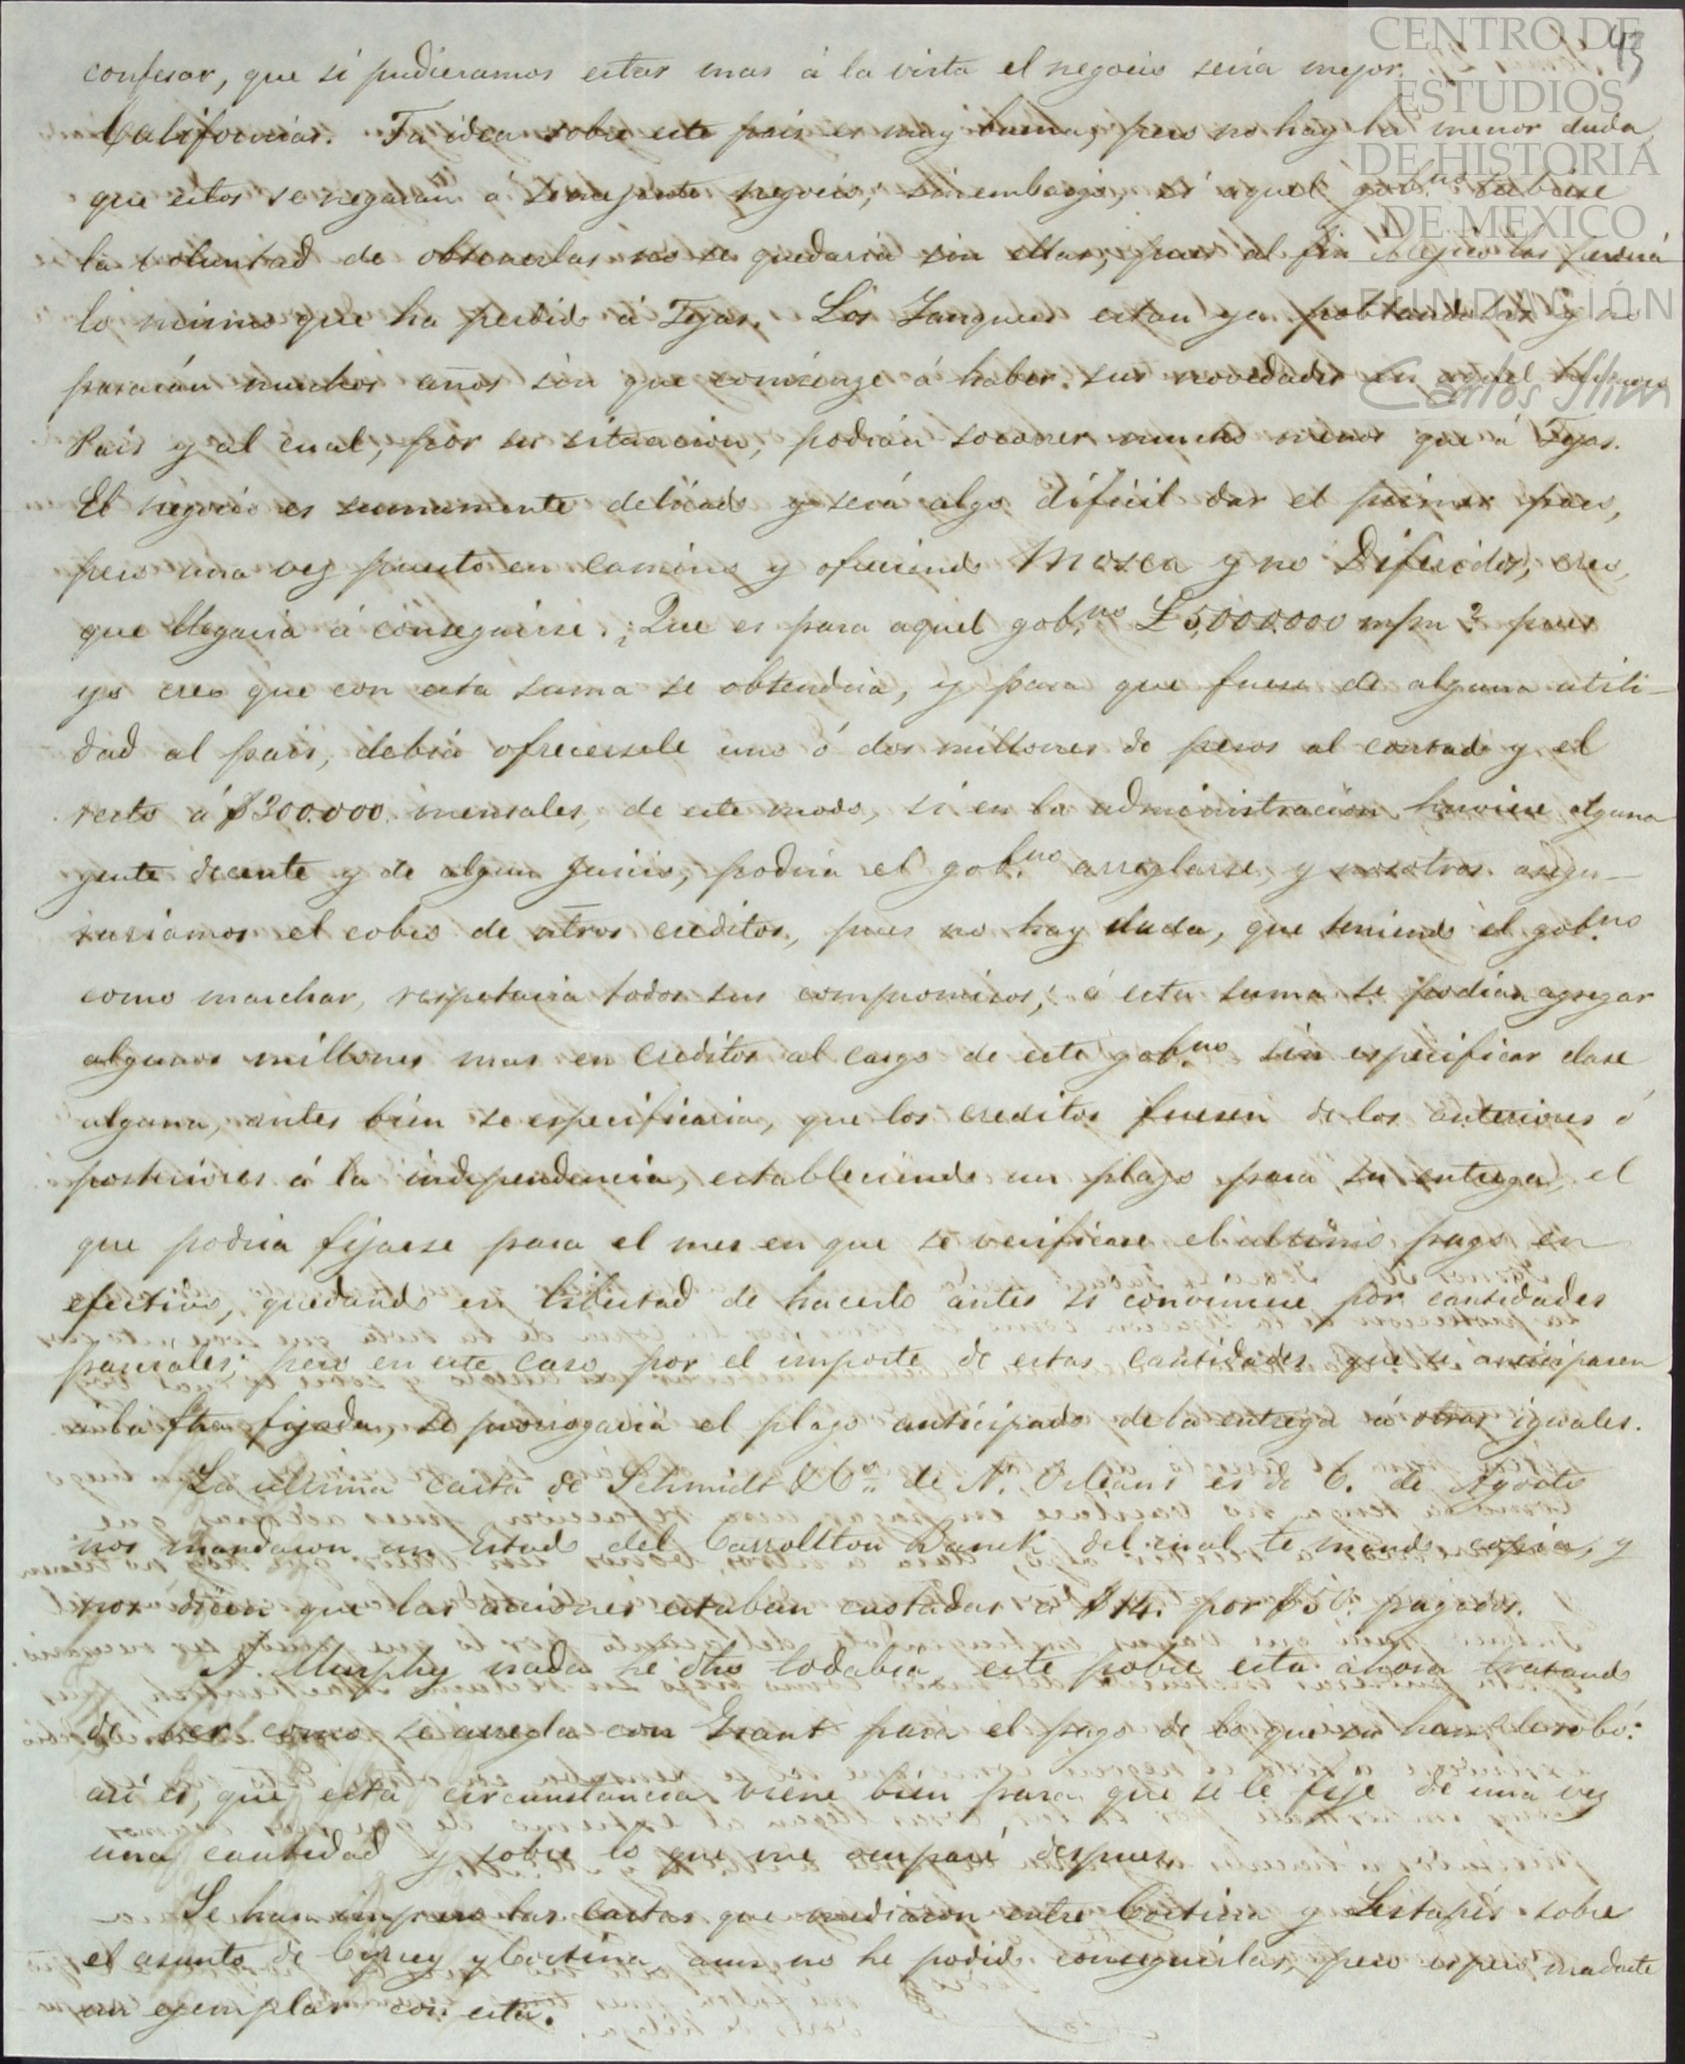 43
CENTRO DE
ESTUDIOS
DE HISTORIA
DE MEXICO
FUNDACIÓN
Carlos Slim
confesar, que si pudieramos estar mas á la vista el negocio seria mejor.
Californias. Tu idea sobre este pais es muy buena, pero no hay la menor duda
que estos se negarán á semejante negocio; sinembargo, si aquel gob.no tubiese
la voluntad de obtenerlas no se quedaria sin ellas, pues al fin Mejico las perderá
lo mismo que ha perdido á Tejas. Los Yanquees estan ya poblandolas y no
pasarán muchos años sin que comienze á haber sus novedades en aquel
Pais y al cual, por su situacion, podrán socorrer mucho menos que á Tejas.
El negocio es sumamente delicado y será algo dificil dar el primer paso,
pero una vez puesto en camino y ofreciendo Mosca y no Diferidos, creo,
que llegaria á conseguirse. ¿Que es para aquel gob.no £5,000.000 m/m? pues
yo creo que con esta suma se obtendria, y para que fuese de alguna utili-
dad al pais, debia ofrecersele uno ó dos millones de pesos al contado y el
resto á $300.000 mensales, de este modo, si en la administracion huviese alguna
gente decente y de algun juicio, podria el gob.no arreglarse, y nosotros asegu-
rariamos el cobro de ntros creditos, pues no hay duda, que teniendo el gob.no
como marchar, respetaria todos sus compromisos; á esta suma se podian agregar
algunos millones mas en creditos al cargo de este gob.no sin especificar clase
alguna, antes bien se especificaria, que los creditos fuesen de los anteriores ó
posteriores á la independencia, estableciendo un plazo para su entrega, el
que podria fijarse para el mes en que se verificase el ultimo pago en
efectivo, quedando en libertad de hacerlo antes si conviniese por cantidades
parciales; pero en este caso por el importe de estas cantidades que se anticipasen
á la fha fijada, se prorrogaria el plazo anticipado de la entrega á otras iguales.
La ultima carta de Schmidt & Ca. de N. Orleans es de 6. de Agosto
nos mandaron un Estado del Carrollton Bank del cual te mando copia, y
nos dicen que las acciones estaban custadas á $14. por $50. pagados.
A Murphy nada he dho todabia, este pobre esta ahora tratando
de ver como se arregla con Grant para el pago de lo que su han le robó:
asi es, que esta circunstancia viene bien para que se le fije de una vez
una cantidad y sobre lo que me ocuparé despues.
Se han impreso las cartas que mediaron entre Cortina y Lestapis sobre
el asunto de Ciprey y Cortina, aun no he podido conseguirlas, pero espero madarte
un ejemplar con esta.